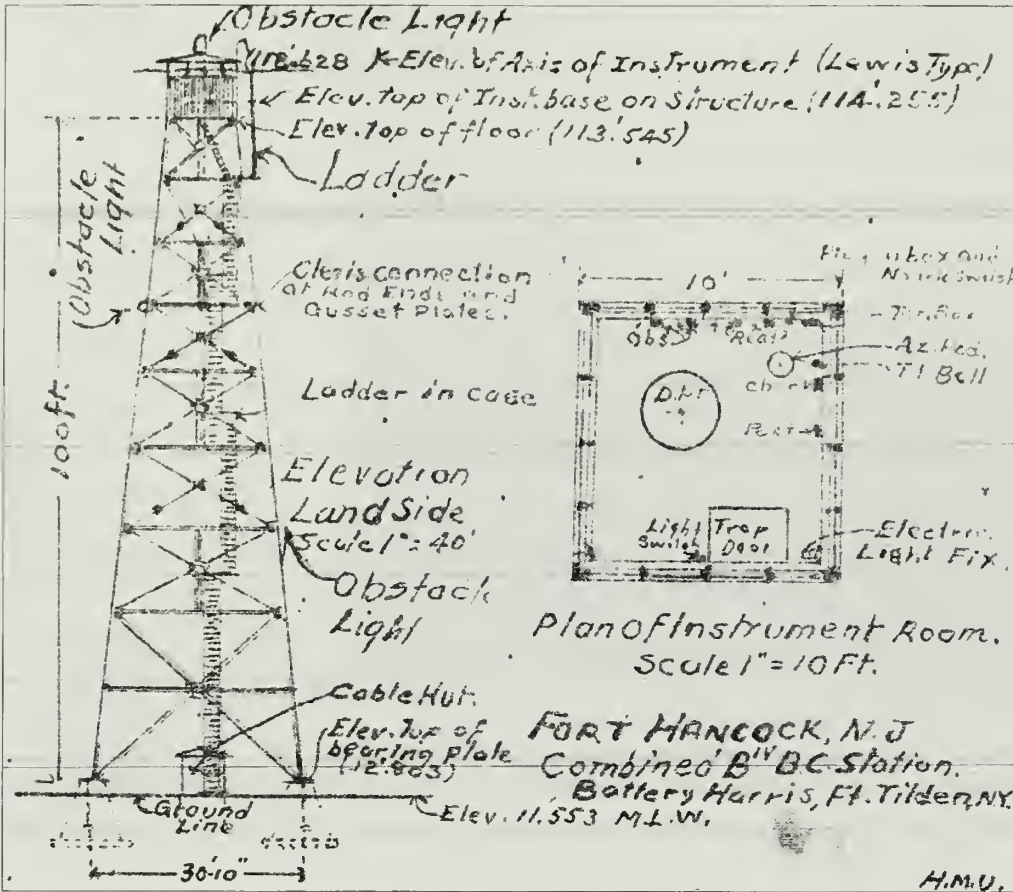 Obstacle Light
118.628 Elev. of Axis of Instrument (Lewis Type)
Elev. top of Inst. base on Structure (114'.255)
Elev. top of floor (113'.545)
Ladder
Obstacle
Light
Clevis connection
at Rod Ends and
Gusset Plates.
100 ft.
Ladder in cage
Elevation
Land Side
Scale 1" = 40'
Obstacle
Light
Cable Hut.
Elev. Top of
bearing plate
Ground
Line
Elev. 11.553 M.L.W.
30'10"
10'
Box and
Switch
Box
Obs
Az. Rod.
T.I. Bell
Light
Switch
Trap
Door
Electric
Light Fix.
Plan of Instrument Room.
Scale 1" = 10 Ft.
FORT HANCOCK, N.J
Combined B'" BC Station.
Battery Harris, Ft. Tilden, NY.
H.M.U.